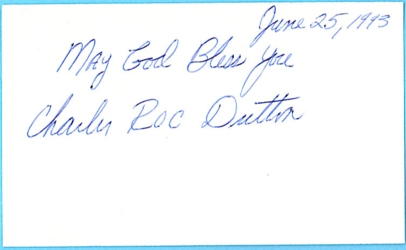 June 25, 1993
May God Bless You
Charles Roc Dutton